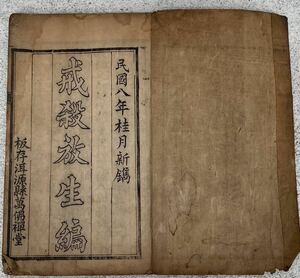 民國八年桂月新鐫
戒殺放生編
板存洱源縣萬佛禪堂